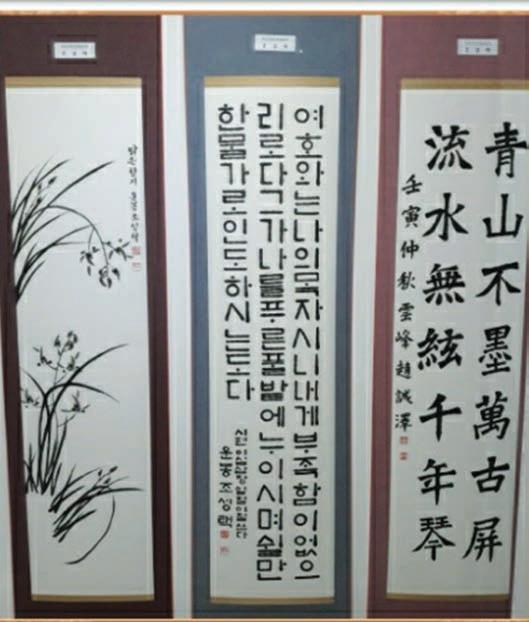 맑은향기 운봉조성택
여호와는나의목자시니내게부족함이없으
리로다그가나를푸른풀밭에누이시며쉴만
한물가로인도하시는도다
운봉조성택
青山不墨萬古屏
流水無絃千年琴
壬寅仲秋雲峰趙誠澤